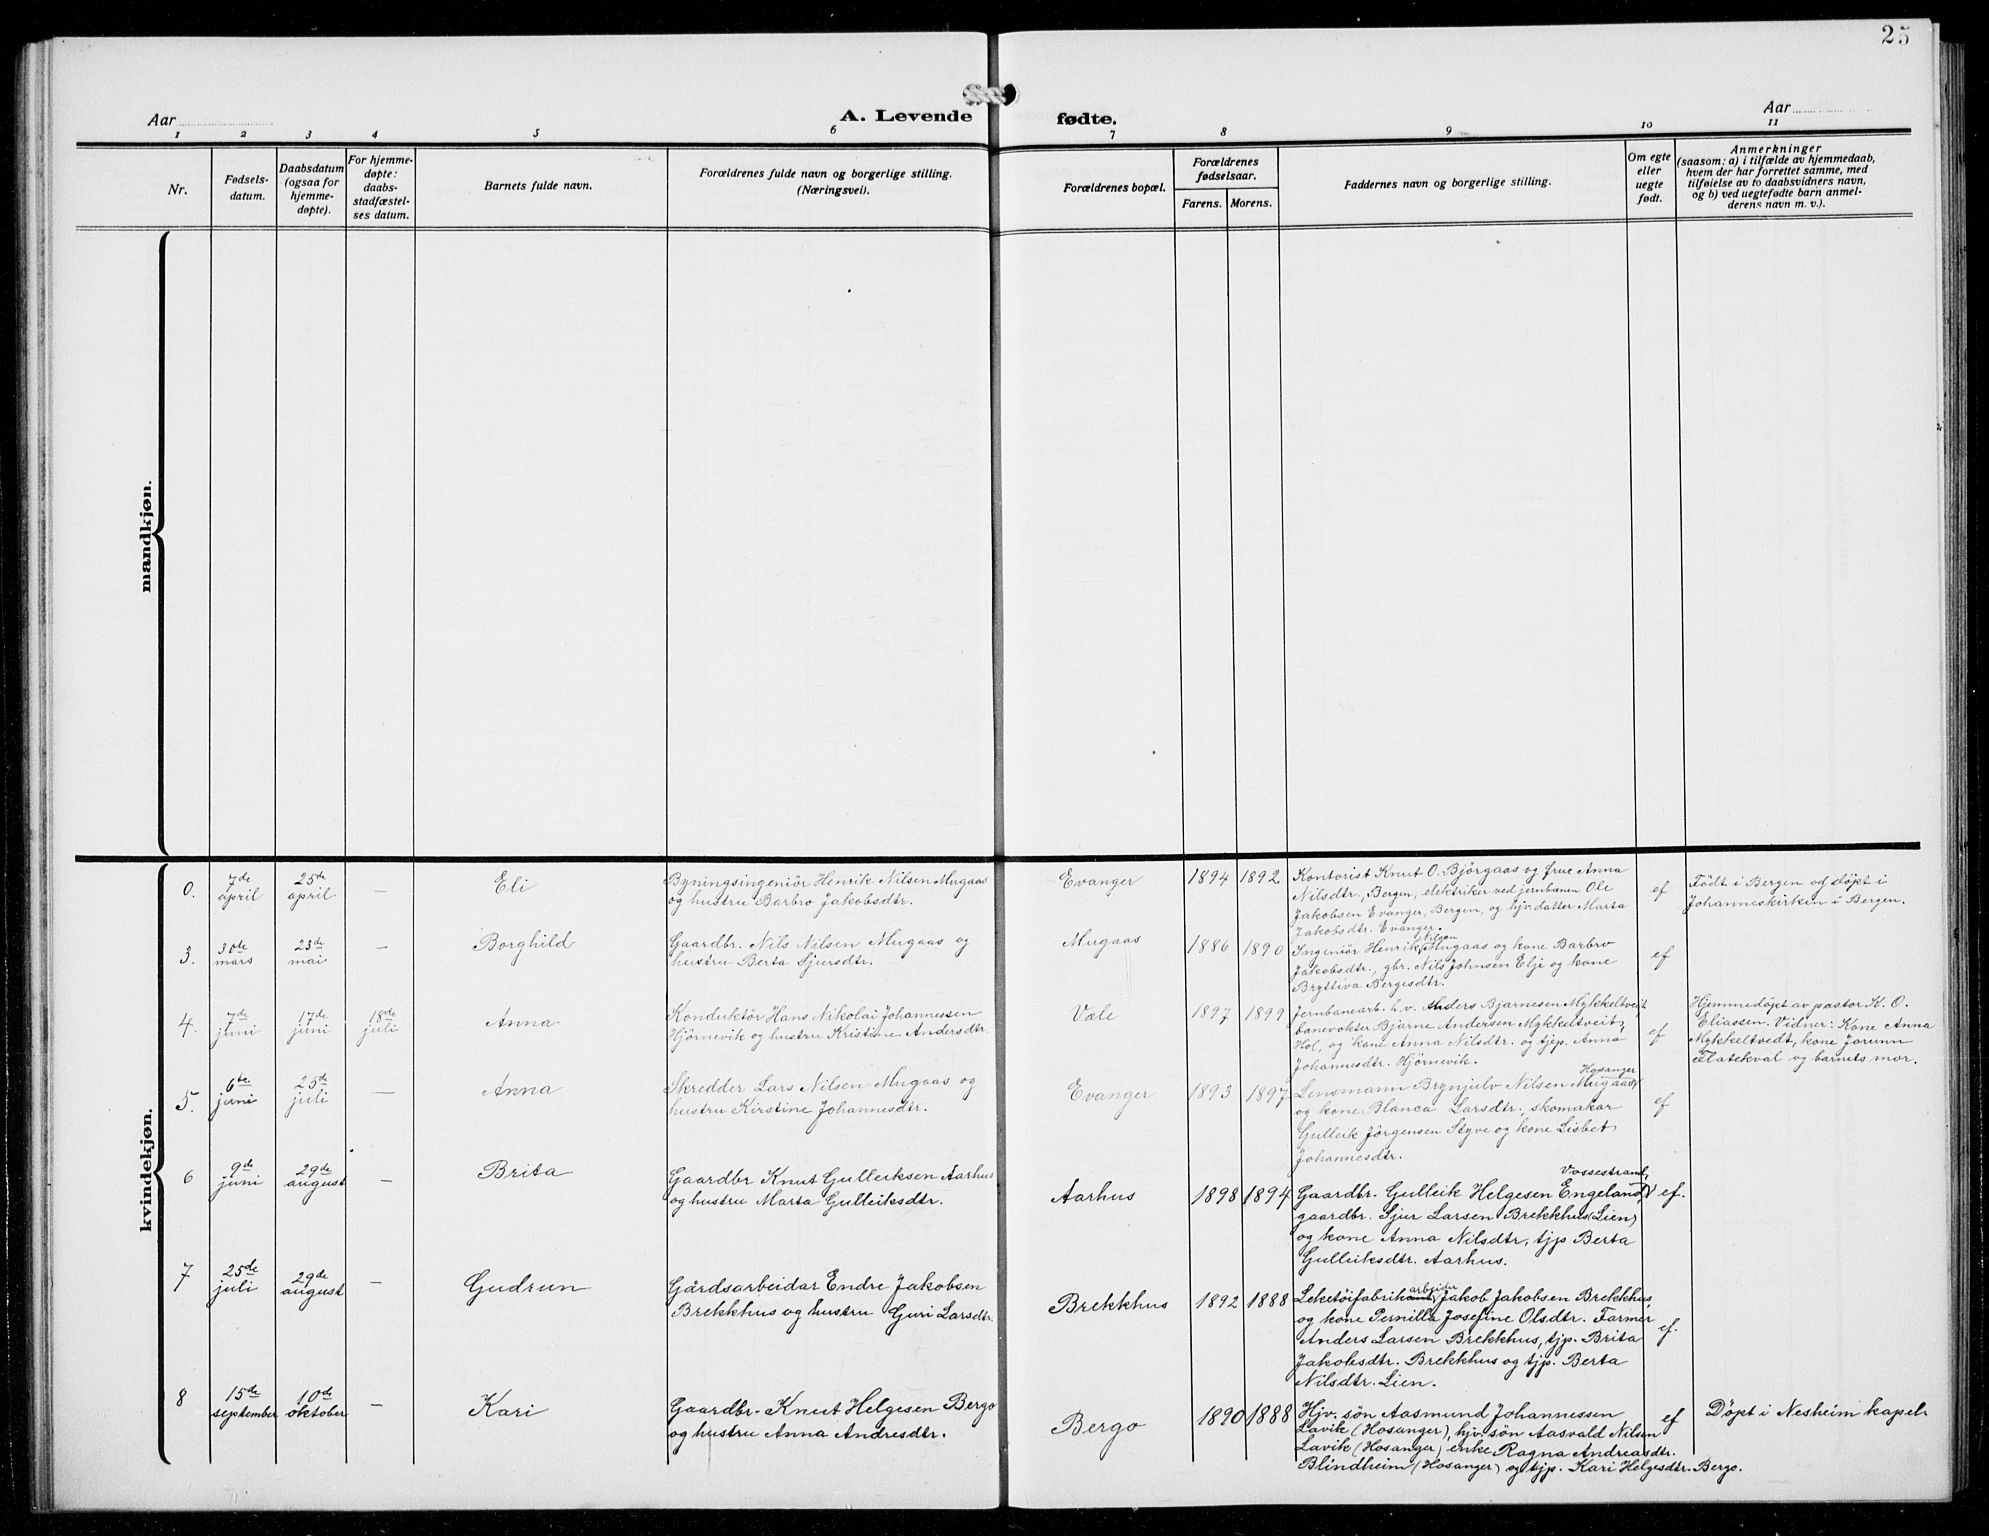 25
Aar
A. Levende fødte.
Aar
1 2 3 4 5 6 7 8 9 10 11
Nr.
Fødsels-
datum.
Daabsdatum
(ogsaa for
hjemme-
døpte).
For hjemme-
døpte:
daabs-
stadfæstel-
ses datum.
Barnets fulde navn.
Forældrenes fulde navn og borgerlige stilling.
(Næringsvei).
Forældrenes bopæl.
Forældrenes
fødselsaar.
Farens. Morens.
Faddernes navn og borgerlige stilling.
Om egte
eller
uegte
født.
Anmerkninger
(saasom: a) i tilfælde av hjemmedaab,
hvem der har forrettet samme, med
tilføielse av to daabsvidners navn,
og b) ved uegtefødte barn anmel-
derens navn m. v.).
mandkjøn.
kvindekjøn.
0.
7de
april
25de
april
—
Eli
Byningsingeniör Henrik Nilsen Mugaas
og hustru Barbro Jakobsdtr.
Evanger
1894 1892
Kontorist Knut O. Björgaas og frue Anna
Nilsdtr, Bergen, elektriker ved jernbanen Ole
Jakobsen Evanger, Bergen, og hjv. datter Marta
Jakobsdtr. Evanger.
ef
Födt i Bergen og döpt i
Johanneskirken i Bergen.
3.
30te
mars
23de
mai
—
Borghild
Gaardbr. Nils Nilsen Mugaas og
hustru Berta Sjursdtr.
Mugaas
1886 1890
Ingeniör Henrik Nilsen Mugaas og kone Barbro
Jakobsdtr., gbr. Nils Johnsen Elje og kone
Bryttiva Bergesdtr.
ef
4.
7de
juni
17de
juni
18de
juli
Anna
Konduktör Hans Nikolai Johannessen
Hjörnevik og hustru Kristine Andersdtr.
Væle
1897 1899
Jernbanearb. h.v. Anders Bjarnesen Mykkeltveit
banevokter Bjarne Andersen Mykkeltveit,
Hol, og kone Anna Nilsdtr. og tjp. Anna
Johannesdtr. Hjörnevik.
ef
Hjemmedöpt av pastor K. O.
Eliassen. Vidner: Kone Anna
Mykkeltvedt, kone Jorunn
Flatekval og barnets mor.
5.
6te
juni
25de
juli
—
Anna
Skredder Lars Nilsen Mugaas og
hustru Kirstine Johannesdtr.
Evanger
1893 1897
Hosanger
Lensmann Brynjulv Nilsen Mugaas,
og kone Blanca Larsdtr., skomakar
Gulleik Jörgensen Styve og kone Lisbet
Johannesdtr.
ef
6
9de
juni
29de
august
—
Brita
Gaardbr Knut Gulleiksen Aarhus
og hustru Marta Gulleiksdtr.
Aarhus
1898 1894
Vossestrand,
Gaardbr. Gulleik Helgesen Engeland,
gaardbr. Sjur Larsen Brekkhus (Lien)
og kone Anna Nilsdtr, tjp Berta
Gulleiksdtr. Aarhus.
ef.
7
25de
juli
29de
august
—
Gudrun
Gårdsarbeidar Endre Jakobsen
Brekkhus og hustru Guri Larsdtr.
Brekkhus
1892 1888
arbeider
Leketöifabrikant Jakob Jakobsen Brekkhus
og kone Pernilla Josefine Olsdtr. Farmer
Anders Larsen Brekkhus, tjp. Brita
Jakobsdtr. Brekkhus og tjp. Berta
Nilsdtr. Lien.
ef.
8
15de
september
10de
oktober
—
Kari
Gaardbr. Knut Helgesen Bergo
og hustru Anna Andresdtr.
Bergo
1890 1888
Hjv. sön Aasmund Johannessen
Lavik (Hosanger), hjv. sön Aasvald Nilsen
Lavik (Hosanger) enke Ragna Andreasdtr.
Blindheim (Hosanger) og tjp. Kari Helgesdtr. Bergo.
ef
Döpt i Nesheim kapel.